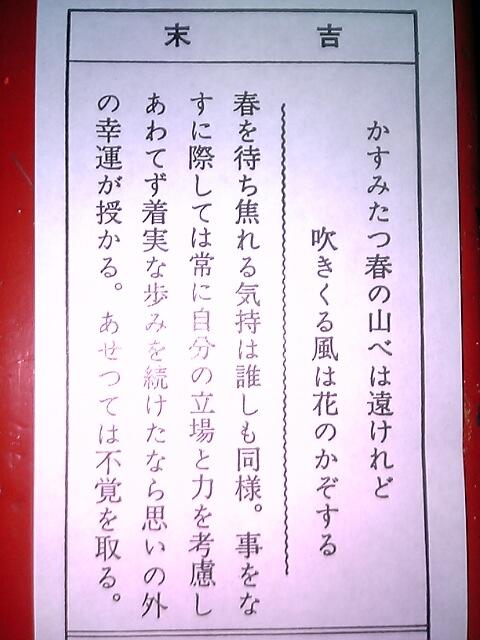 吉　末
かすみたつ春の山べは遠けれど
吹きくる風は花のかぞする
春を待ち焦れる気持は誰しも同様。事をな
すに際しては常に自分の立場と力を考慮し
あわてず着実な歩みを続けたなら思いの外
の幸運が授かる。あせつては不覚を取る。